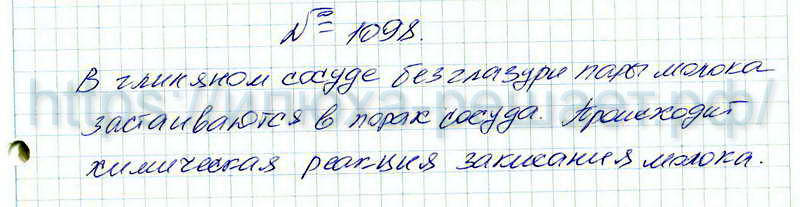 № 1098.
В глиняном сосуде без глазури пары молока
застаиваются в порах сосуда. Происходит
химическая реакция закисания молока.